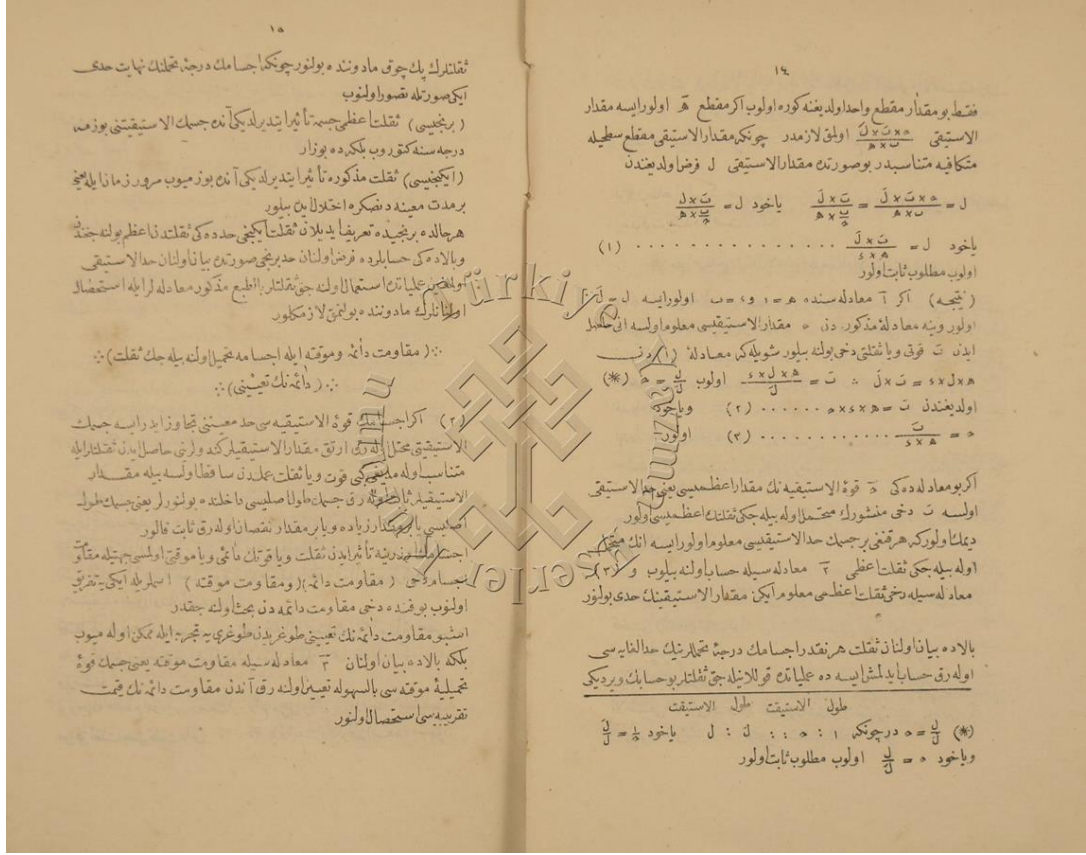 ١٤
فقط بو مقدار مقطع واحد اولديغنه كوره اولوب اكر مقطع اولور ايسه مقدار
الاستيقى اولمق لازمدر چونكه مقدار الاستيقى مقطع سطحيله
متكافيه متناسبدر بو صورتده مقدار الاستيقى ل فرض اولديغندن
ياخود ل =
ياخود ل = (١)
اولوب مطلوب ثابت اولور
(نتيجه) اكر معادله سنده اولور ايسه
اولور وينه معادلۀ مذكوره دن مقدار الاستيقيسى معلوم اولسه انى حاصل
ايدن قوتى ويا ثقلتى دخى بولنه بيلور شويله كه معادلۀ (١) دن
اولوب (*)
اولديغندن (٢) وياخود
(٣) اولور
اكر بو معادله ده كى قوۀ الاستيقيه نك مقدار اعظميسى يعنى حد الاستيقى
اولسه دخى منشورك متحمل اوله بيله جكى ثقلتك اعظميسى اولور
ديمك اولور كه هر قنغى بر جسمك حد الاستيقيسى معلوم اولور ايسه انك متحمل
اوله بيله جكى ثقلت اعظمى معادله سيله حساب اولنه بيلوب و (٣)
معادله سيله دخى ثقلت اعظمى معلوم ايكن مقدار الاستيقينك حدى بولنور
بالاده بيان اولنان ثقلت هر نقدر اجسامك درجۀ تحمللرينك حد الغايه سى
اوله رق حساب ايدلمش ايسه ده عملياتده قوللانيله جق ثقلتلر بو حسابك ويرديكى
طول الاستيقت طول الاستيقت
(*) در چونكه ياخود
وياخود اولوب مطلوب ثابت اولور
١٥
ثقلتلرك پك چوق مادوننده بولنور چونكه اجسامك درجۀ تحملنك نهايت حدى
ايكى صورتله تصور اولنوب
(برنجيسى) ثقلت اعظمى جسمه تأثير ايتديرلديكى آنده جسمك الاستيقيتنى بوزمه
درجه سنه كتوروب بلكه ده بوزار
(ايكنجيسى) ثقلت مذكوره تأثير ايتديرلديكى آنده بوزميوب مرور زمان ايله يعنى
بر مدت معينه دنصكره اختلال ايده بيلور
هر حالده برنجيده تعريف ايديلان ثقلت ايكنجى حدده كى ثقلتدن اعظم بولنه جغندن
وبالاده كى حسابلرده فرض اولنان حد برنجى صورتده بيان اولنان حد الاستيقى
اولديغندن عملياتده استعمال اولنه جق ثقلتلر بالطبع مذكور معادله لر ايله استحصال
اولنانلرك مادوننده بولنمق لازمكلور
(مقاومت دائمه وموقته ايله اجسامه تحميل اولنه بيله جك ثقلت)
(دائمه نك تعيينى)
(٢) اكر اجسامك قوۀ الاستيقيه سى حد معيننى تجاوز ايدر ايسه جسمك
الاستيقيتى مختل اوله رق ارتق مقدار الاستيقيلر كندولرنى حاصل ايدن ثقلتلر ايله
متناسب اوله مديغى كبى قوت ويا ثقلت عملدن ساقط اولسه بيله مقدار
الاستيقيلر ثابت اوله رق جسمك طول اصليسى داخلنده بولنور لر يعنى جسمك طول
اصليسى يا بر مقدار زياده ويا بر مقدار نقصان اوله رق ثابت قالور
اجسامك اوزرينه تأثير ايدن ثقلت ويا قوتك دائمى ويا موقتى اولمسى جهتيله مقاومت
اجسام دخى (مقاومت دائمه) (ومقاومت موقته) اسملريله ايكى يه تفريق
اولنوب بو فنده دخى مقاومت دائمه دن بحث اولنه جقدر
اشبو مقاومت دائمه نك تعيينى طوغريدن طوغرى يه تجربه ايله ممكن اوله ميوب
بلكه بالاده بيان اولنان معادله سيله مقاومت موقته يعنى جسمك قوۀ
تحميليۀ موقته سى بالسهوله تعيين اولنه رق آندن مقاومت دائمه نك قيمت
تقريبيه سى استحصال اولنور